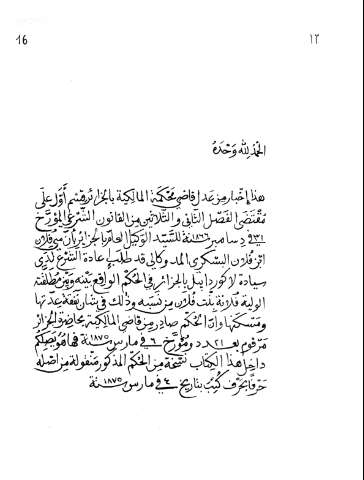 16
١٢
الحمد لله وحده
هذا إخبار من عدل قاضي محكمة المالكية بالجزائر قسم أول على
مقتضى الفصل الثاني والثلاثين من القانون الشرعي المؤرخ
٣١ في دسامبر سنة ١٨٦٦ للسيد الوكيل العام بالجزائر بأن سي فلان
ابن فلان البسكري المد وكالي قد طلب إعادة الشرع لدى
سيادة لاكور دابيل بالجزائر في الحكم الواقع بينه وبين مطلقته
الولية فلانة بنت فلان من نسبه وذلك في شان نفقة عدتها
ومسكنها وان الحكم صادر من قاضي المالكية بحاضرة الجزائر
مرقوم بعـ٢١ـدد ومؤرخ ٦ في مارس سنة ١٨٧٥ فها هو يصلكم
داخل هذا الكتاب نسخة من الحكم المذكور منقولة من اصله
حرفا بحرف كتب بتاريخ ٤ في مارس سنة ١٨٧٥